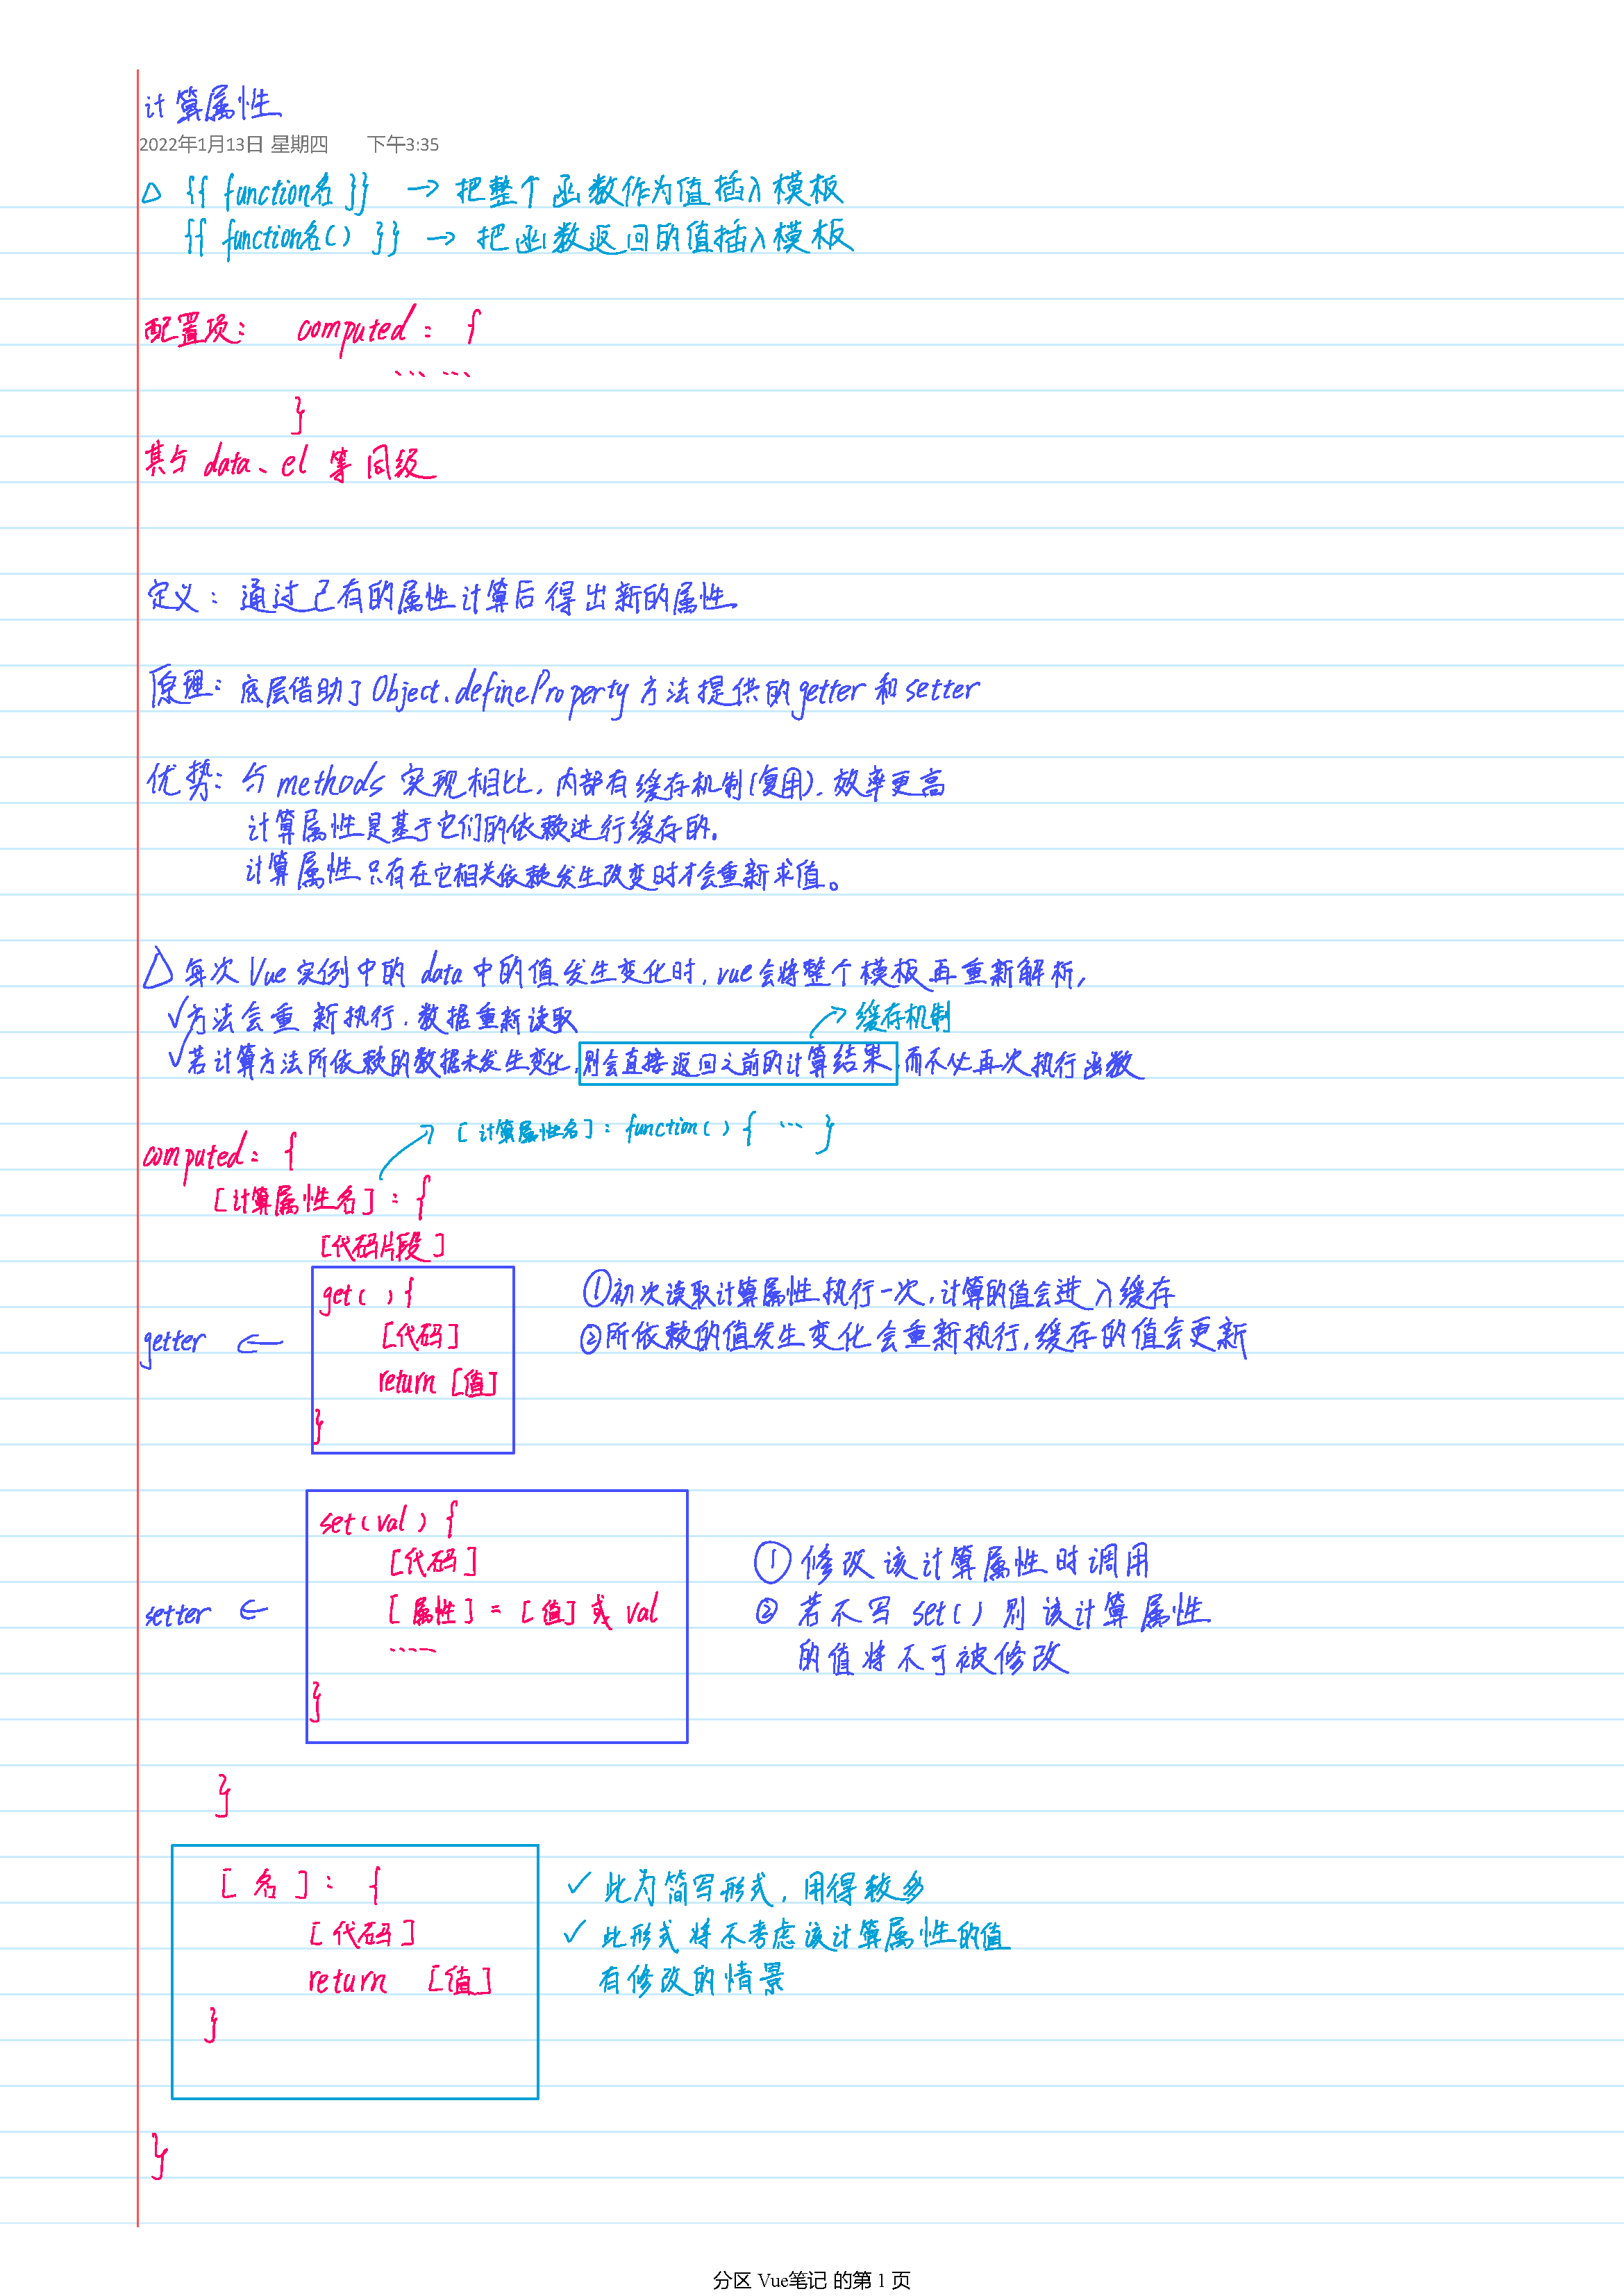 计算属性
2022年1月13日 星期四 下午3:35
△ {{ function名 }} → 把整个函数作为值插入模板
{{ function名() }} → 把函数返回的值插入模板
配置项: computed: {
... ...
}
其与 data、el 等同级
定义: 通过已有的属性计算后得出新的属性.
原理: 底层借助了Object.defineProperty方法提供的getter和setter
优势: 与 methods 实现相比, 内部有缓存机制(复用), 效率更高
计算属性是基于它们的依赖进行缓存的.
计算属性只有在它相关依赖发生改变时才会重新求值。
△ 每次 Vue 实例中的 data 中的值发生变化时, vue会将整个模板再重新解析,
→ 缓存机制
✓方法会重新执行, 数据重新读取
✓若计算方法所依赖的数据未发生变化, 则会直接返回之前的计算结果, 而不必再次执行函数
→ [计算属性名]: function() { ... }
computed: {
[计算属性名]: {
[代码片段]
get() {
①初次读取计算属性执行一次, 计算的值会进入缓存
[代码]
getter ←
②所依赖的值发生变化会重新执行, 缓存的值会更新
return [值]
}
set(val) {
[代码]
① 修改该计算属性时调用
setter ←
[属性] = [值] 或 val
② 若不写 set() 则该计算属性
......
的值将不可被修改
}
}
[名]: {
✓ 此为简写形式, 用得较多
[代码]
✓ 此形式将不考虑该计算属性的值
return [值]
有修改的情景
}
}
分区 Vue笔记 的第 1 页